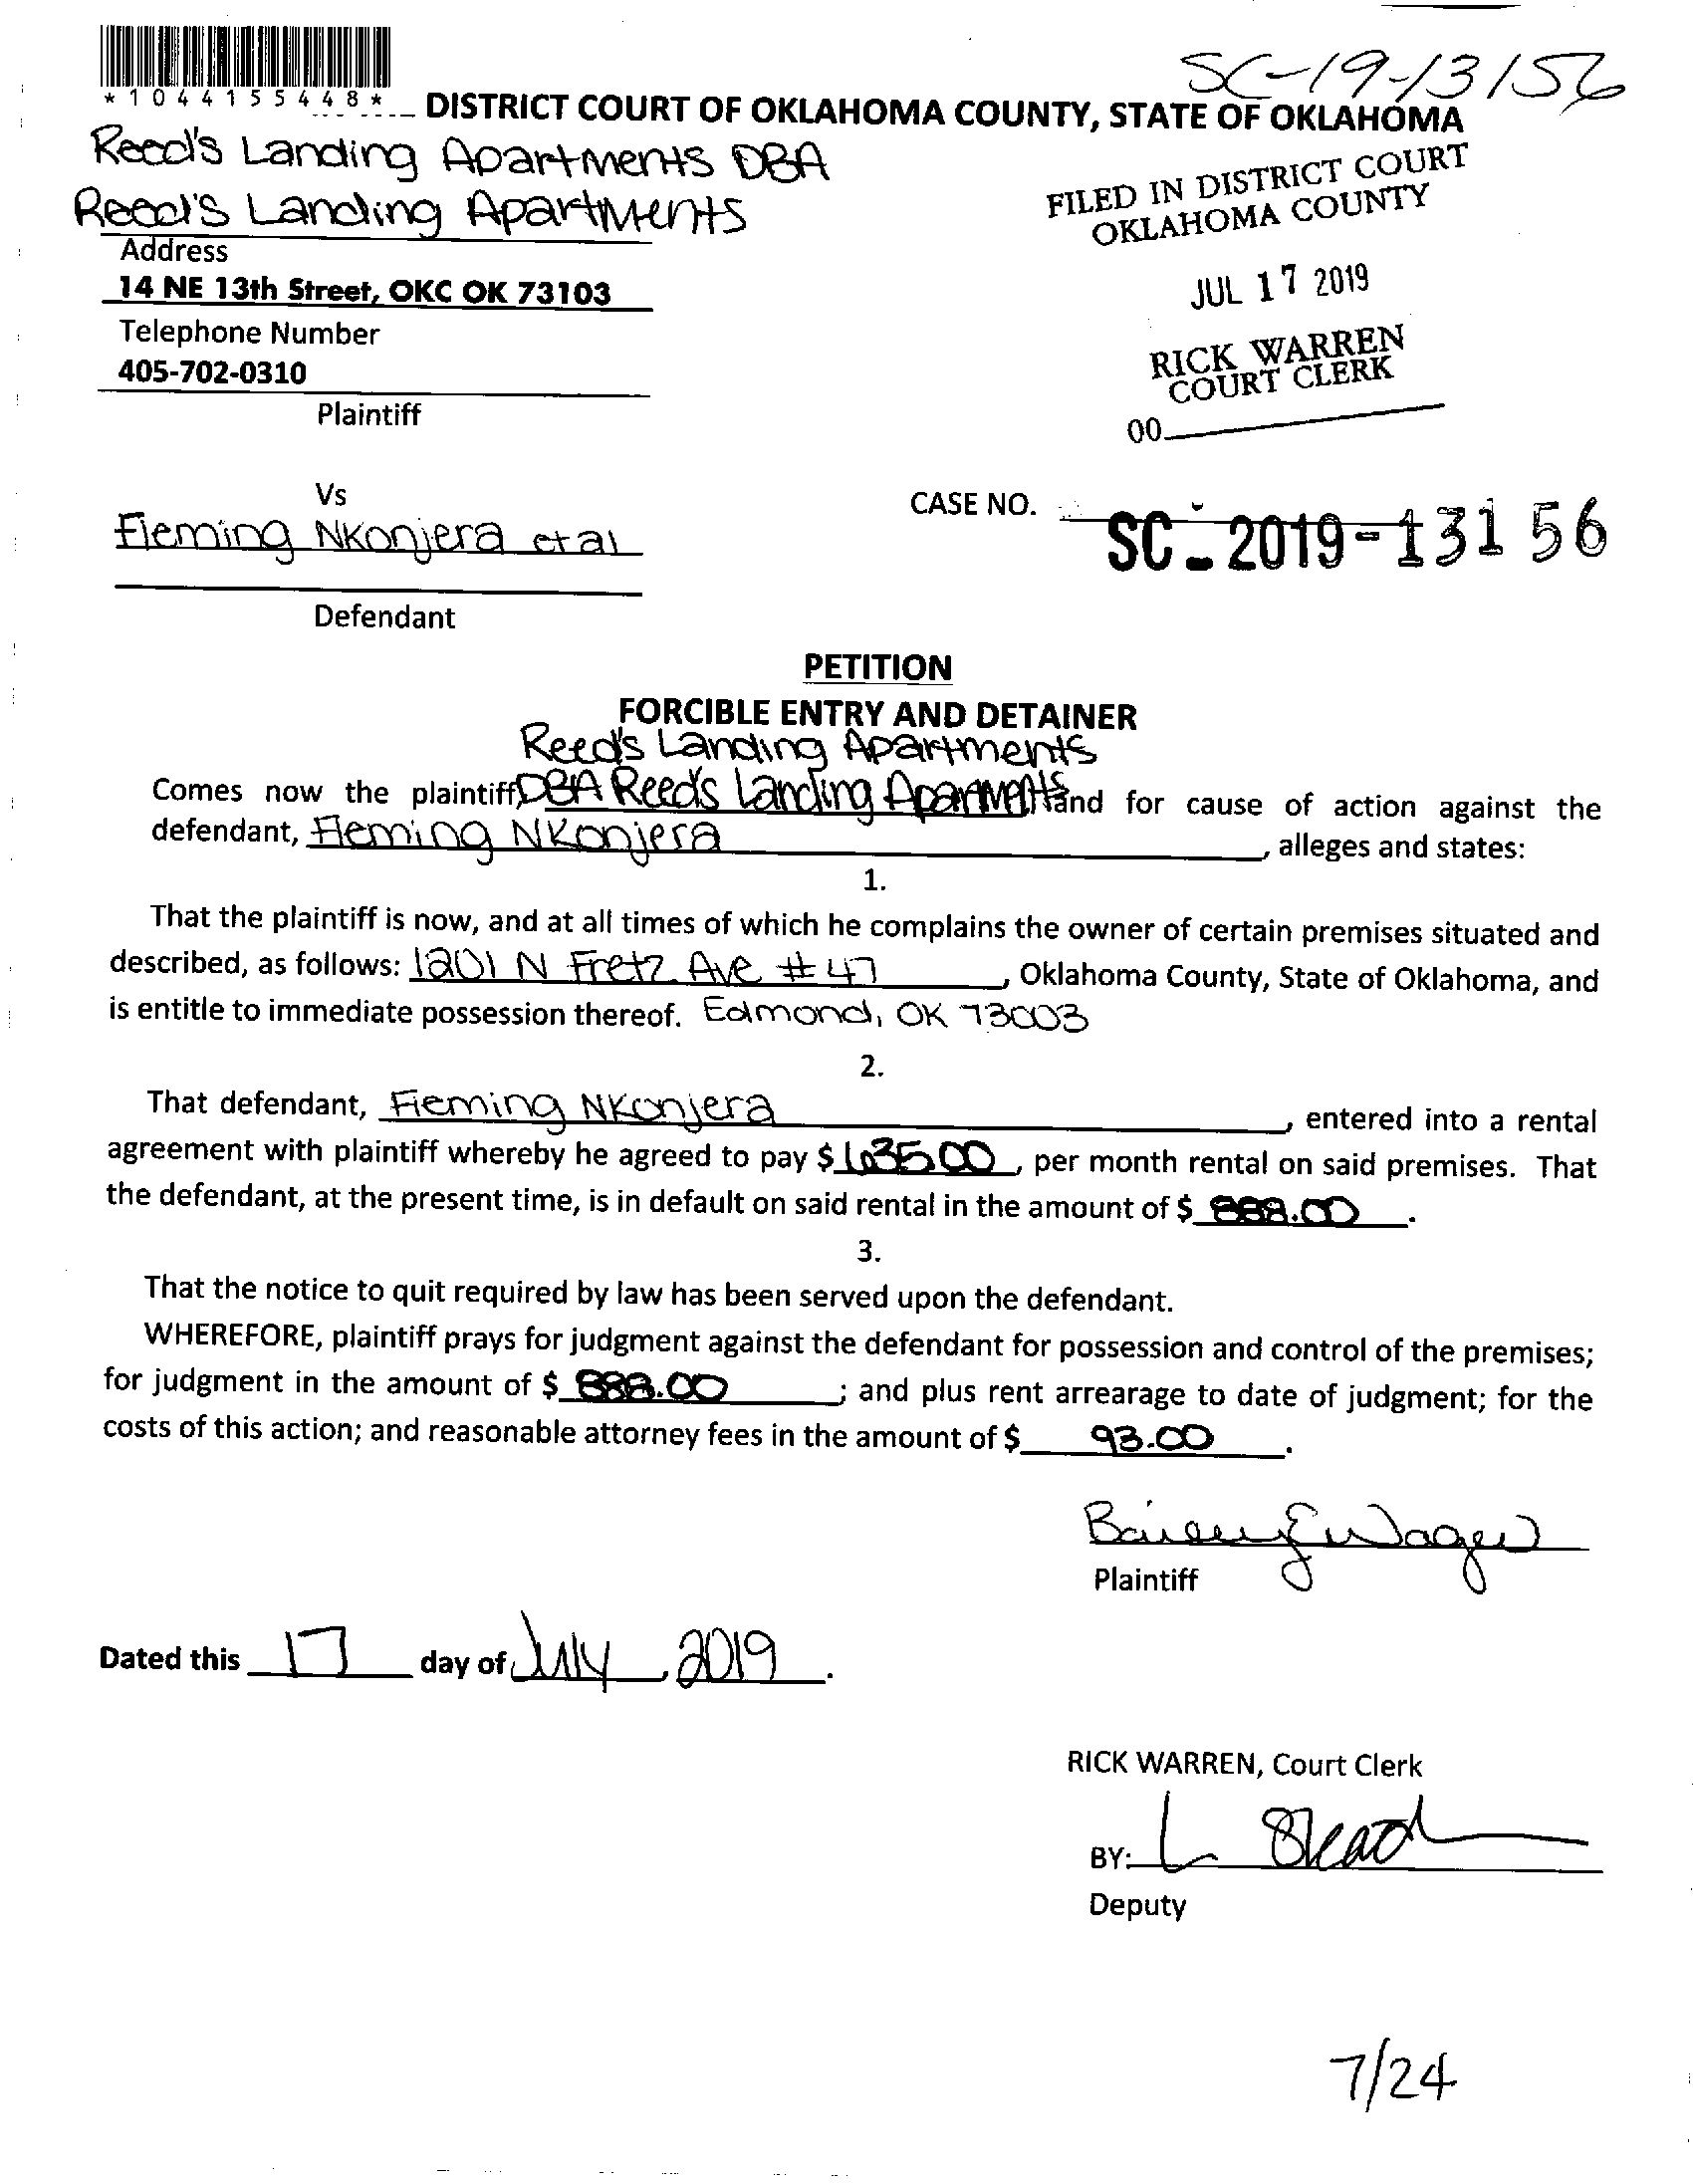 *1044155448*
SC-19-13156
DISTRICT COURT OF OKLAHOMA COUNTY, STATE OF OKLAHOMA
Reed's Landing Apartments DBA
Reed's Landing Apartments
Address
14 NE 13th Street, OKC OK 73103
Telephone Number
405-702-0310
Plaintiff
FILED IN DISTRICT COURT
OKLAHOMA COUNTY
JUL 17 2019
RICK WARREN
COURT CLERK
00
Vs
Fleming Nkonjera et al
Defendant
CASE NO. SC-2019-13156
PETITION
FORCIBLE ENTRY AND DETAINER
Reed's Landing Apartments
Comes now the plaintiff, DBA Reed's Landing Apartments and for cause of action against the
defendant, Fleming Nkonjera, alleges and states:
1.
That the plaintiff is now, and at all times of which he complains the owner of certain premises situated and
described, as follows: 1201 N Fretz Ave #47, Oklahoma County, State of Oklahoma, and
is entitle to immediate possession thereof. Edmond, OK 73003
2.
That defendant, Fleming Nkonjera, entered into a rental
agreement with plaintiff whereby he agreed to pay $ 635.00, per month rental on said premises. That
the defendant, at the present time, is in default on said rental in the amount of $ 888.00.
3.
That the notice to quit required by law has been served upon the defendant.
WHEREFORE, plaintiff prays for judgment against the defendant for possession and control of the premises;
for judgment in the amount of $ 888.00; and plus rent arrearage to date of judgment; for the
costs of this action; and reasonable attorney fees in the amount of $ 93.00.
Plaintiff
Dated this 17 day of July, 2019.
RICK WARREN, Court Clerk
BY: L
Deputy
7/24